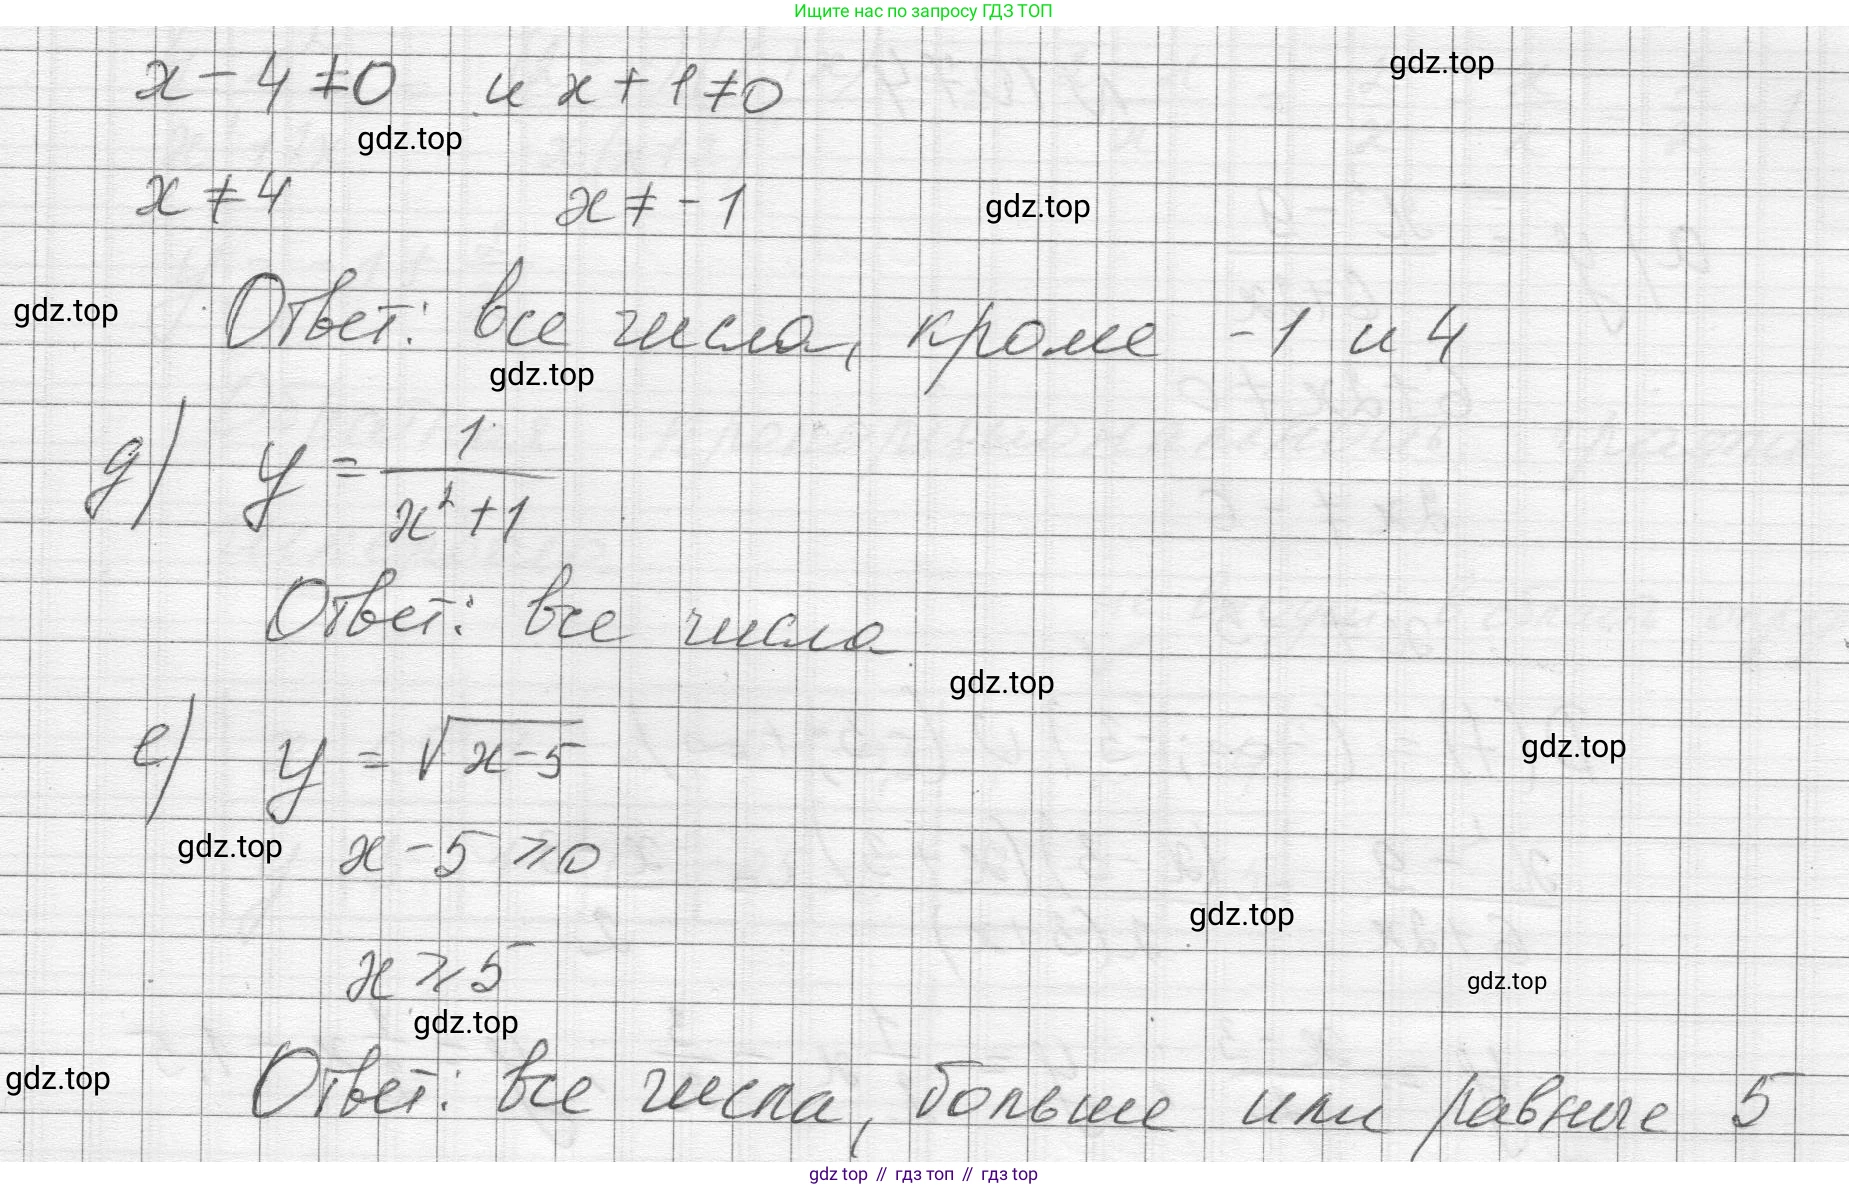 Ищите нас по запросу ГДЗ ТОП
x - 4 ≠ 0 и x + 1 ≠ 0
gdz.top
gdz.top
x ≠ 4 x ≠ - 1
gdz.top
gdz.top
Ответ: все числа, кроме -1 и 4
gdz.top
д) y = 1/(x² + 1)
Ответ: все числа
gdz.top
е) y = √(x - 5)
gdz.top
gdz.top
x - 5 ⩾ 0
gdz.top
x ⩾ 5
gdz.top
gdz.top
gdz.top
Ответ: все числа, больше или равные 5
gdz top // гдз топ // gdz top